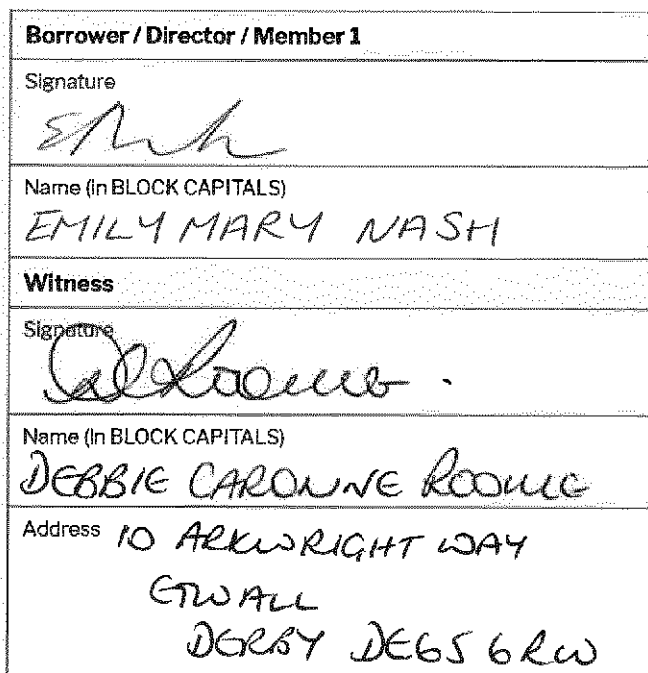 Borrower / Director / Member 1
Signature
Name (in BLOCK CAPITALS)
EMILY MARY NASH
Witness
Signature
Name (in BLOCK CAPITALS)
DEBBIE CAROLINE
Address 10 ARKWRIGHT WAY
ETWALL
DERBY DE65 6RW